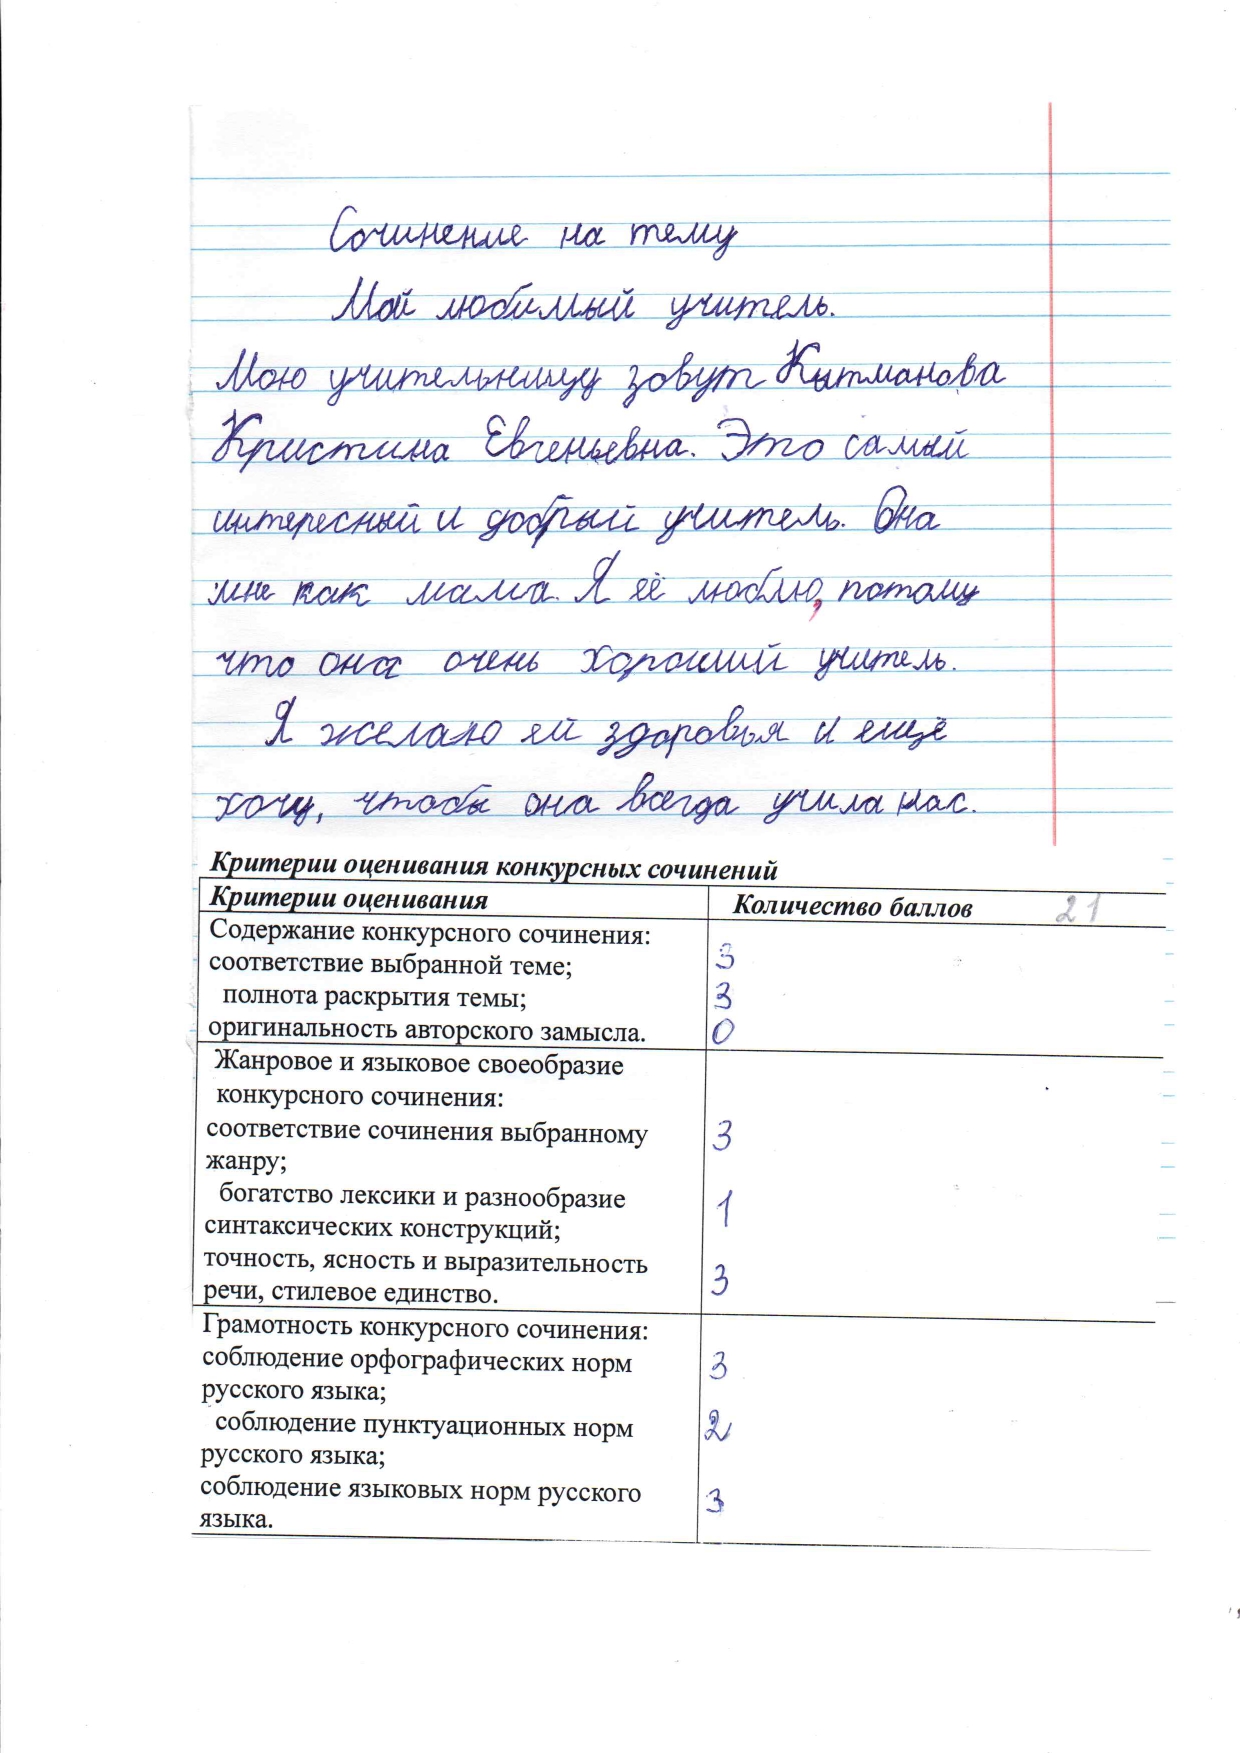 Сочинение на тему
Мой любимый учитель.
Мою учительницу зовут Кытманова
Кристина Евгеньевна. Это самый
интересный и добрый учитель. Она
мне как мама. Я её люблю, потому
что она очень хороший учитель.
Я желаю ей здоровья и ещё
хочу, чтобы она всегда учила нас.
Критерии оценивания конкурсных сочинений
Критерии оценивания Количество баллов 21
Содержание конкурсного сочинения:
соответствие выбранной теме; 3
полнота раскрытия темы; 3
оригинальность авторского замысла. 0
Жанровое и языковое своеобразие
конкурсного сочинения:
соответствие сочинения выбранному 3
жанру;
богатство лексики и разнообразие 1
синтаксических конструкций;
точность, ясность и выразительность 3
речи, стилевое единство.
Грамотность конкурсного сочинения:
соблюдение орфографических норм 3
русского языка;
соблюдение пунктуационных норм 2
русского языка;
соблюдение языковых норм русского 3
языка.